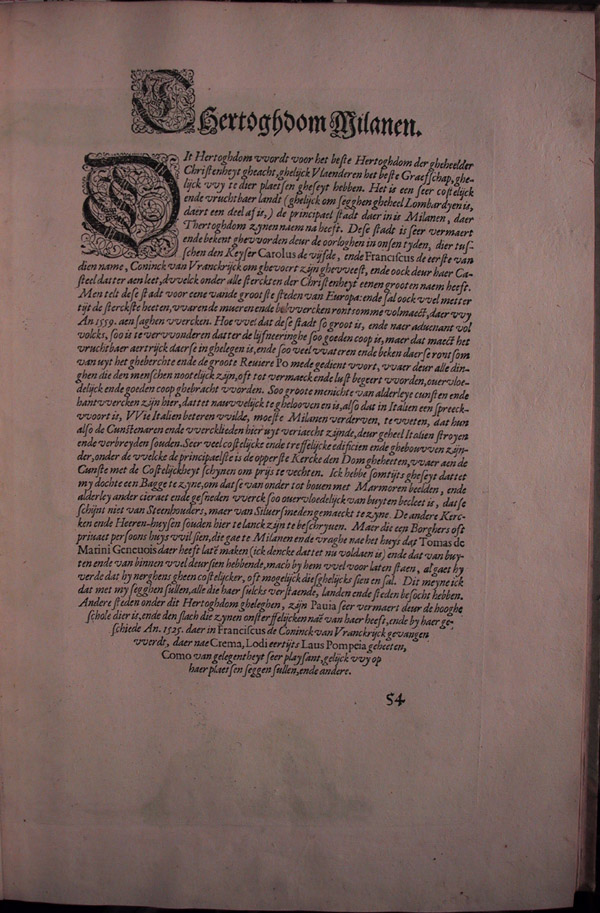 T'Hertoghdom Milanen.
DIt Hertoghdom vvordt voor het beste Hertoghdom der gheheelder
Christenheyt gheacht, ghelijck Vlaenderen het beste Graefschap, ghe-
lijck vvy te dier plaetsen gheseyt hebben. Het is een seer costelijck
ende vruchtbaer landt (ghelijck om segghen gheheel Lombardyen is,
daert een deel af is,) de principael stadt daer in is Milanen, daer
Thertoghdom zynen naem na heeft. Dese stadt is seer vermaert
ende bekent ghevvorden deur de oorloghen in onsen tyden, dier tus-
schen den Keyser Carolus de vijfde, ende Franciscus de eerste van
dien name, Coninck van Vranckrijck om ghevoert zijn ghevveest, ende oock deur haer Ca-
steel datter aen leet, dvvelck onder alle sterckten der Christenheyt eenen grooten naem heeft.
Men telt dese stadt voor eene vande grootste steden van Europa: ende sal oock vvel metter
tijt de sterckste heeten, vvaren de mueren ende bolvvercken rontsomme volmaect, daer vvy
An 1559. aen saghen vvercken. Hoe vvel dat dese stadt so groot is, ende naer aduenant vol
volcks, soo is te vervvonderen datter de lijfneeringhe soo goeden coop is, maer dat maect het
vruchtbaer aertrijck daerse in ghelegen is, ende soo veel vvateren ende beken daerse rontsom
van uyt het gheberchte ende de groote Reuiere Po mede gedient vvort, vvaer deur alle din-
ghen die den menschen nootelijck zijn, oft tot vermaeck ende lust begeert vvorden, ouervloe-
delijck ende goeden coop ghebracht vvorden. Soo groote menichte van alderleye cunsten ende
hantvvercken zijn hier, dattet nauvvelijck te ghelooven en is, also dat in Italien een spreeck-
vvoort is, VVie Italien beteren vvilde, moeste Milanen verderven, te vveten, dat hun
also de Cunstenaren ende vvercklieden hier uyt veriaecht zijnde, deur geheel Italien stroyen
ende verbreyden souden. Seer veel costelijcke ende treffelijcke edificien ende ghebouvven zijn-
der, onder de vvelcke de principaelste is de opperste Kercke den Dom gheheeten, vvaer aen de
Cunste met de Costelijckheyt schynen om prijs te vechten. Ick hebbe somtijts gheseyt dattet
my dochte een Bagge te zyne, om datse van onder tot bouen met Marmoren beelden, ende
alderley ander cieraet ende gesneden vverck soo ouervloedelijck van buyten becleet is, datse
schijnt niet van Steenhouders, maer van Siluersmeden gemaeckt te zyne. De andere Kerc-
ken ende Heeren-huysen souden hier te lanck zijn te beschryuen. Maer dit een Borghers oft
priuaet persoons huys vvil sien, die gae te Milanen ende vraghe nae het huys dat Tomas de
Marini Geneuois daer heeft latē maken (ick dencke dattet nu voldaen is) ende dat van buy-
ten ende van binnen vvel deursien hebbende, mach by hem vvel voor laten staen, al gaet hy
verde dat hy nerghens gheen costelijcker, oft mogelijck diesghelijcks sien en sal. Dit meyne ick
dat met my segghen sullen, alle die haer sulcks verstaende, landen ende steden besocht hebben.
Andere steden onder dit Hertoghdom gheleghen, zijn Pauia seer vermaert deur de hooghe
schole dier is, ende den slach die zynen onsterffelijcken naē van haer heeft, ende by haer ge-
schiede An. 1525. daer in Franciscus de Coninck van Vranckrijck gevangen
vverdt, daer nae Crema, Lodi eertijts Laus Pompeia geheeten,
Como van gelegentheyt seer playsant, gelijck vvy op
haer plaetsen seggen sullen, ende andere.
54